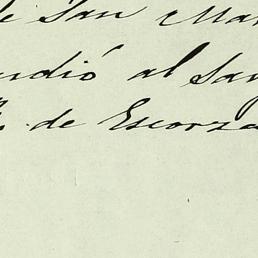 de San Mar
endió al San
R. de Escorza